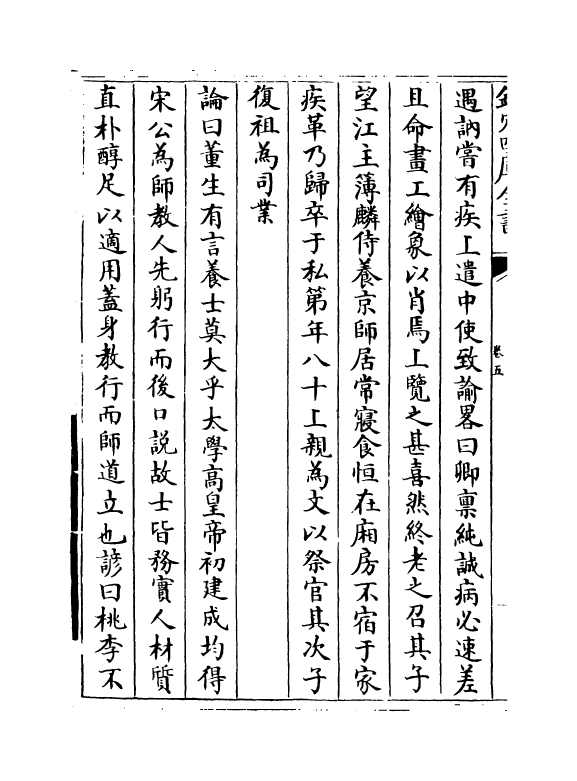 欽定四庫全書
卷五
遇訥嘗有疾上遣中使致諭畧曰卿禀純誠病必速差
且命畫工繪象以肖焉上覽之甚喜然終老之召其子
望江主簿麟侍養京師居常寢食恒在廂房不宿于家
疾革乃歸卒于私第年八十上親為文以祭官其次子
復祖為司業
論曰董生有言養士莫大乎太學高皇帝初建成均得
宋公為師教人先躬行而後口說故士皆務實人材質
直朴醇足以適用蓋身教行而師道立也諺曰桃李不